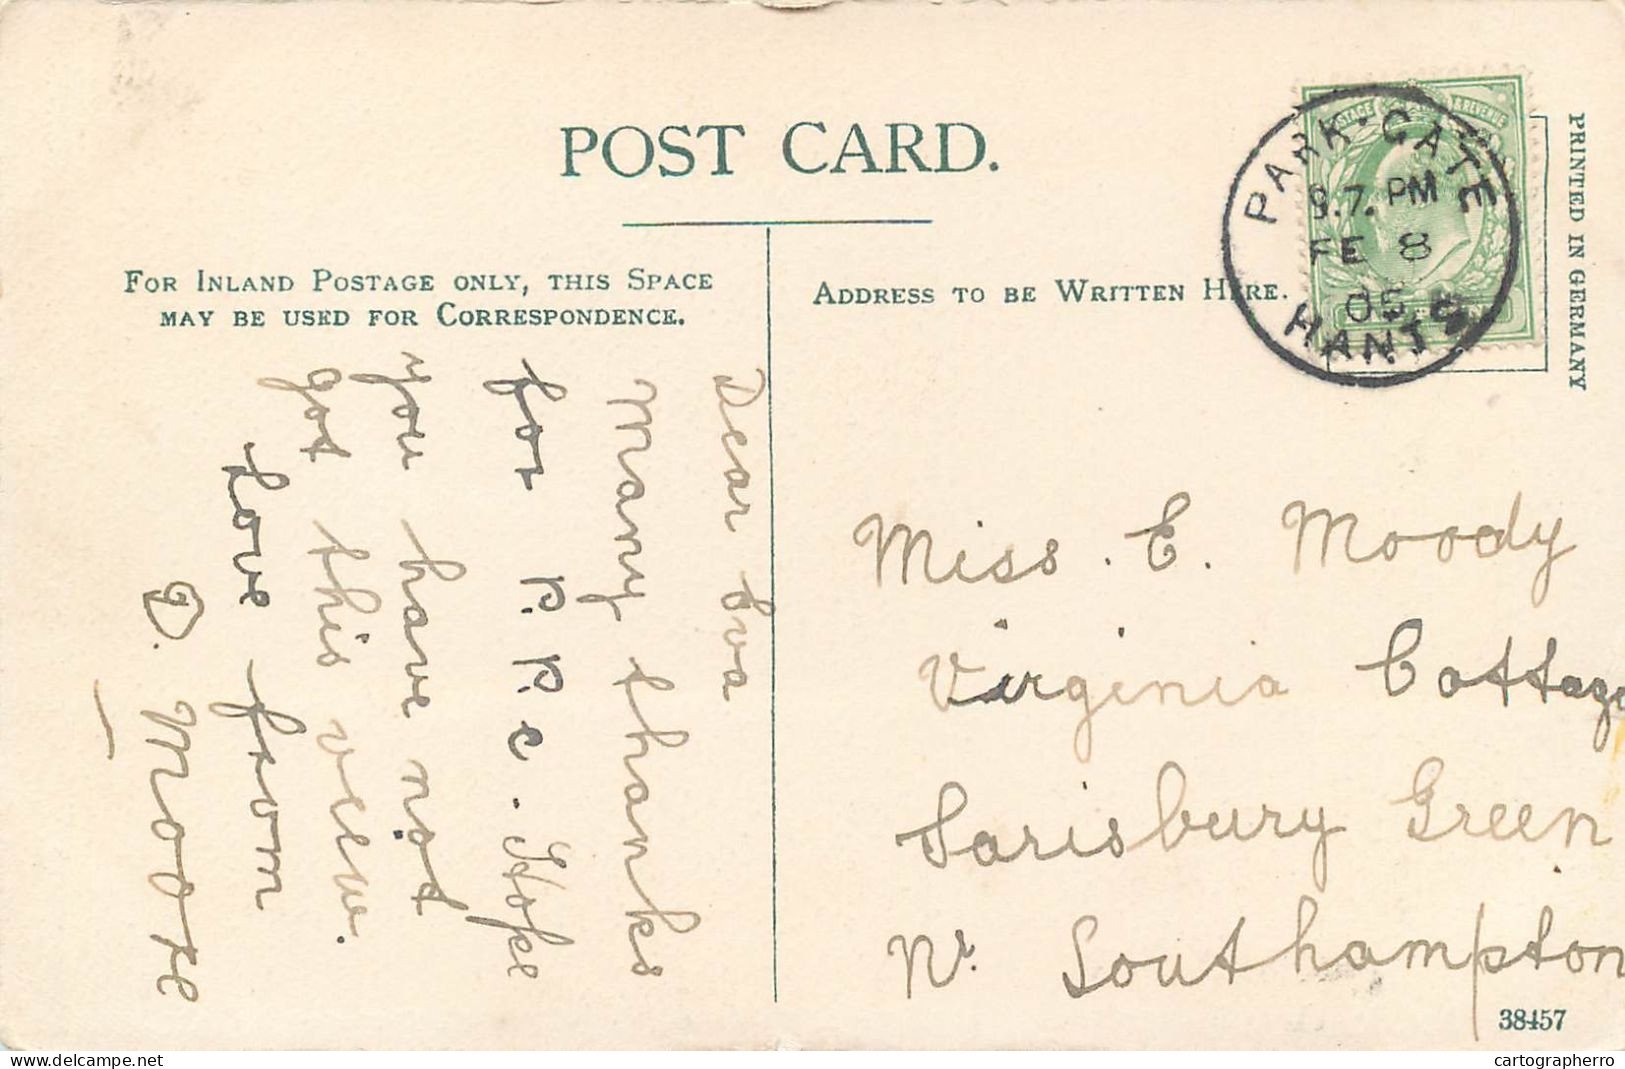 POST CARD.
FOR INLAND POSTAGE ONLY, THIS SPACE
MAY BE USED FOR CORRESPONDENCE.
ADDRESS TO BE WRITTEN HERE.
PRINTED IN GERMANY
PARK-GATE
9.7. PM
FE 8
05
HANTS
Dear Eva
Many thanks
for P.P.c. Hope
you have not
got this view.
Love from
D. Moore
Miss. E. Moody
Virginia Cottage
Sarisbury Green
Nr. Southampton
38457
delcampe.net
cartographerro